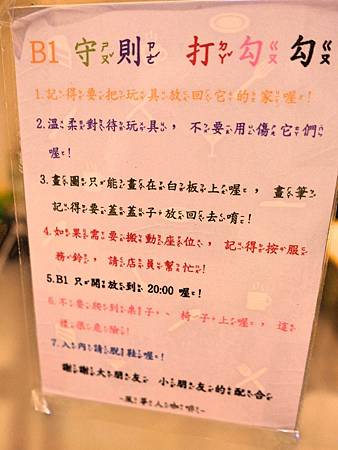 B1 守則 打勾勾
1.記得要把玩具放回它的家喔!
2.溫柔對待玩具，不要用傷它們
喔!
3.畫圖只能畫在白板上喔，畫筆
記得要蓋蓋子放回去唷!
4.如果需要搬動座位，記得按服
務鈴，請店員幫忙!
5.B1 只開放到 20:00 喔!
6.不要爬到桌子、椅子上喔，這
樣很危險!
7.入內請脫鞋喔!
謝謝大朋友 小朋友的配合
~風華人咖啡~